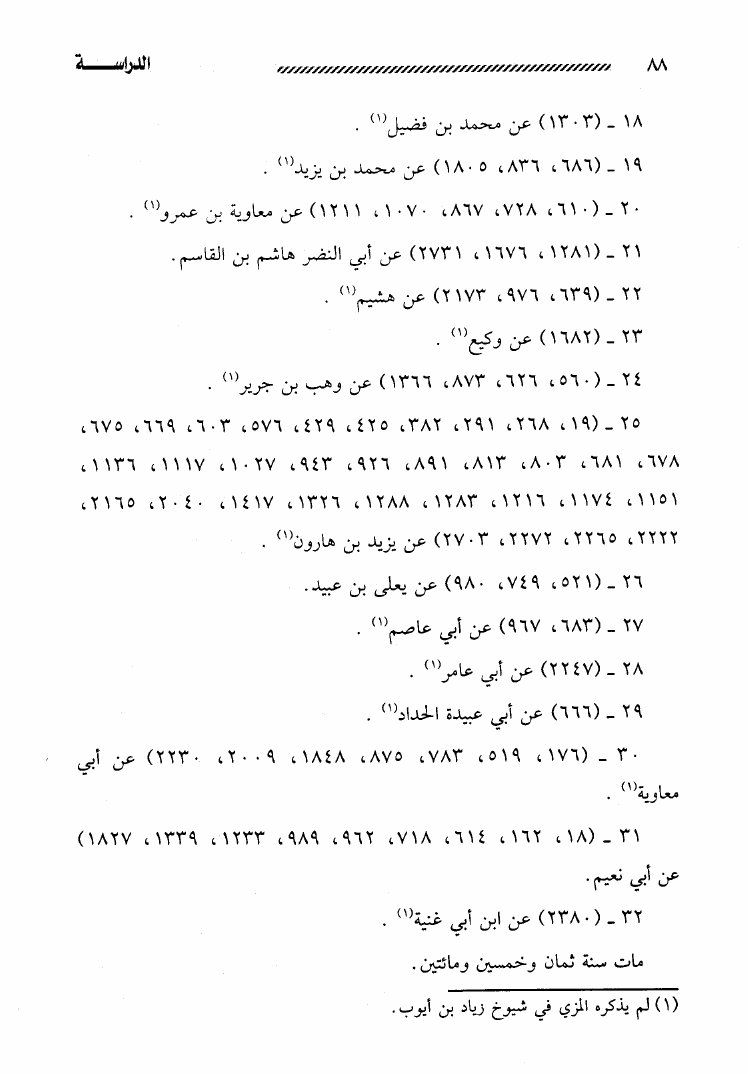 ٨٨ الدراســـة
١٨ ـ (١٣٠٣) عن محمد بن فضيل(١) .
١٩ ـ (٦٨٦، ٨٣٦، ١٨٠٥) عن محمد بن يزيد(١) .
٢٠ ـ (٦١٠، ٧٢٨، ٨٦٧، ١٠٧٠، ١٢١١) عن معاوية بن عمرو(١) .
٢١ ـ (١٢٨١، ١٦٧٦، ٢٧٣١) عن أبي النضر هاشم بن القاسم.
٢٢ ـ (٦٣٩، ٩٧٦، ٢١٧٣) عن هشيم(١) .
٢٣ ـ (١٦٨٢) عن وكيع(١) .
٢٤ ـ (٥٦٠، ٦٢٦، ٨٧٣، ١٣٦٦) عن وهب بن جرير(١) .
٢٥ ـ (١٩، ٢٦٨، ٢٩١، ٣٨٢، ٤٢٥، ٤٢٩، ٥٧٦، ٦٠٣، ٦٦٩، ٦٧٥،
٦٧٨، ٦٨١، ٨٠٣، ٨١٣، ٨٩١، ٩٢٦، ٩٤٣، ١٠٢٧، ١١١٧، ١١٣٦،
١١٥١، ١١٧٤، ١٢١٦، ١٢٨٣، ١٢٨٨، ١٣٢٦، ١٤١٧، ٢٠٤٠، ٢١٦٥،
٢٢٢٢، ٢٢٦٥، ٢٢٧٢، ٢٧٠٣) عن يزيد بن هارون(١) .
٢٦ ـ (٥٢١، ٧٤٩، ٩٨٠) عن يعلى بن عبيد.
٢٧ ـ (٦٨٣، ٩٦٧) عن أبي عاصم(١) .
٢٨ ـ (٢٢٤٧) عن أبي عامر(١) .
٢٩ ـ (٦٦٦) عن أبي عبيدة الحداد(١) .
٣٠ ـ (١٧٦، ٥١٩، ٧٨٣، ٨٧٥، ١٨٤٨، ٢٠٠٩، ٢٢٣٠) عن أبي
معاوية(١) .
٣١ ـ (١٨، ١٦٢، ٦١٤، ٧١٨، ٩٦٢، ٩٨٩، ١٢٣٣، ١٣٣٩، ١٨٢٧)
عن أبي نعيم.
٣٢ ـ (٢٣٨٠) عن ابن أبي غنية(١) .
مات سنة ثمان وخمسين ومائتين.
(١) لم يذكره المزي في شيوخ زياد بن أيوب.